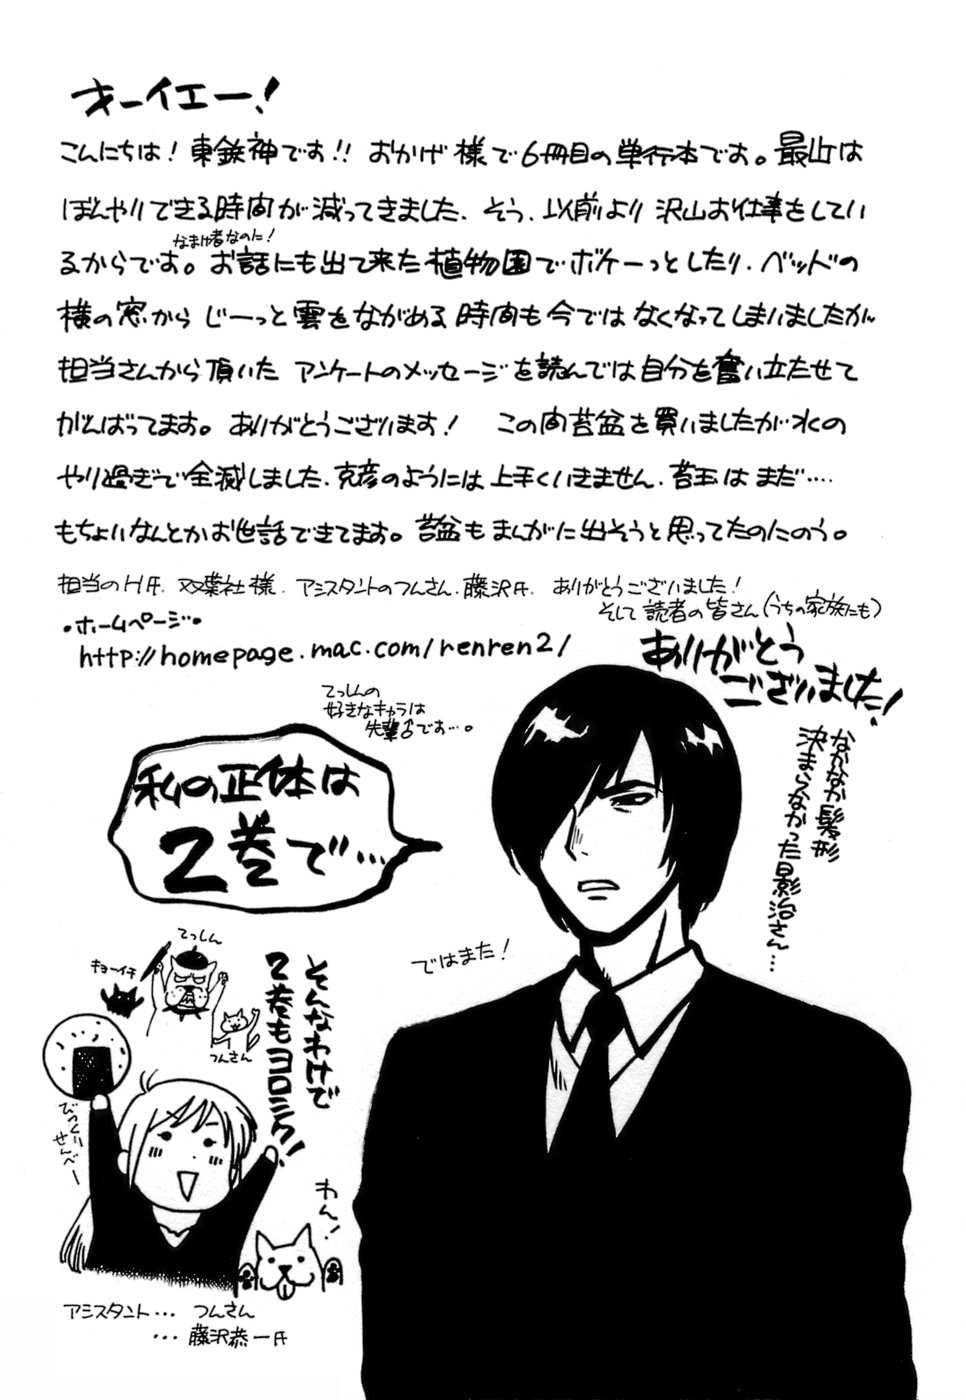 オーイエー!
こんにちは!東鉄神です!!おかげ様で6冊目の単行本です。最近は
ぼんやりできる時間が減ってきました、そう、以前より沢山お仕事をしてい
なまけ者なのに!
るからです。お話にも出て来た植物園でボケーっとしたり、ベッドの
横の窓からじーっと雲をながめる時間も今ではなくなってしまいましたが、
担当さんから頂いたアンケートのメッセージを読んでは自分を奮い立たせて
がんばってます。ありがとうございます! この間苔盆を買いましたが水の
やり過ぎで全滅しました、克彦のようには上手くいきません、苔玉はまだ‥‥
もちょいなんとかお世話できてます。苔盆もまんがに出そうと思ってたのにのう。
担当のH氏、双葉社様、アシスタントのつんさん、藤沢氏、ありがとうございました!
そして読者の皆さん(うちの家族にも)
ありがとう
ございました!
・ホームページ・
http://homepage.mac.com/renren2/
てっしんの
好きなキャラは
先輩♂です…。
私の正体は
2巻で…
なかなか髪形
決まらなかった影治さん…
ではまた!
そんなわけで
2巻もヨロシク!
てっしん
キョーイチ
つんさん
びっくりせんべー
わん!
アシスタント… つんさん
… 藤沢恭一氏